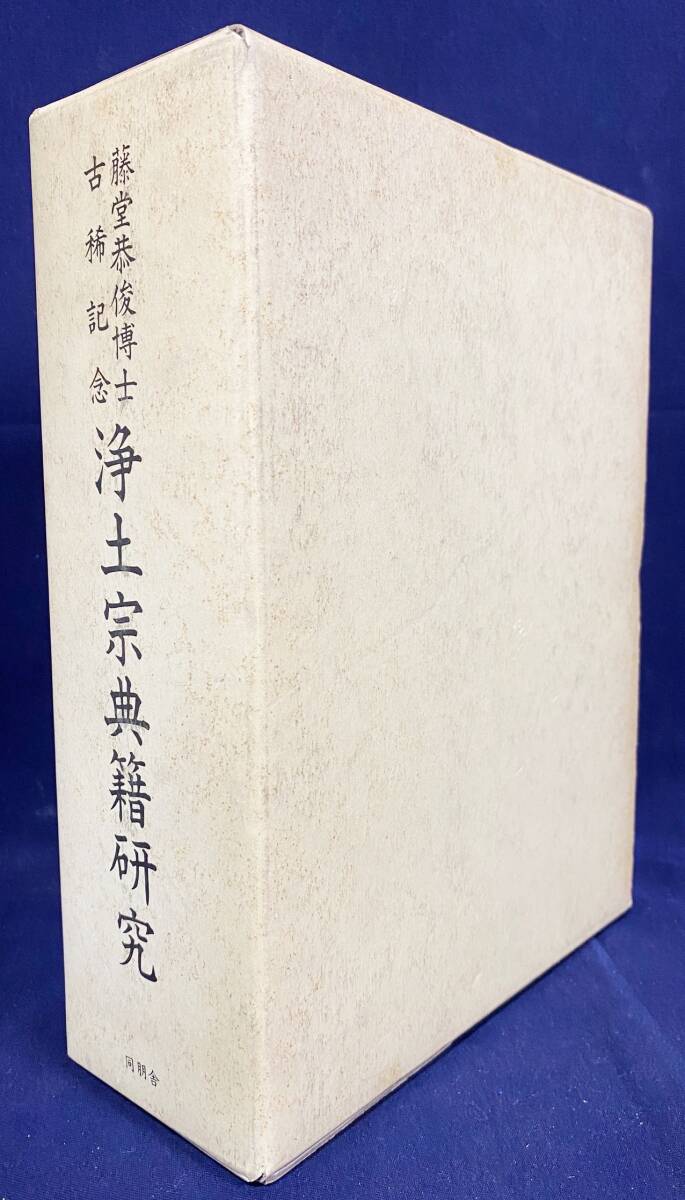 藤堂恭俊博士
古稀記念
浄土宗典籍研究
同朋舎